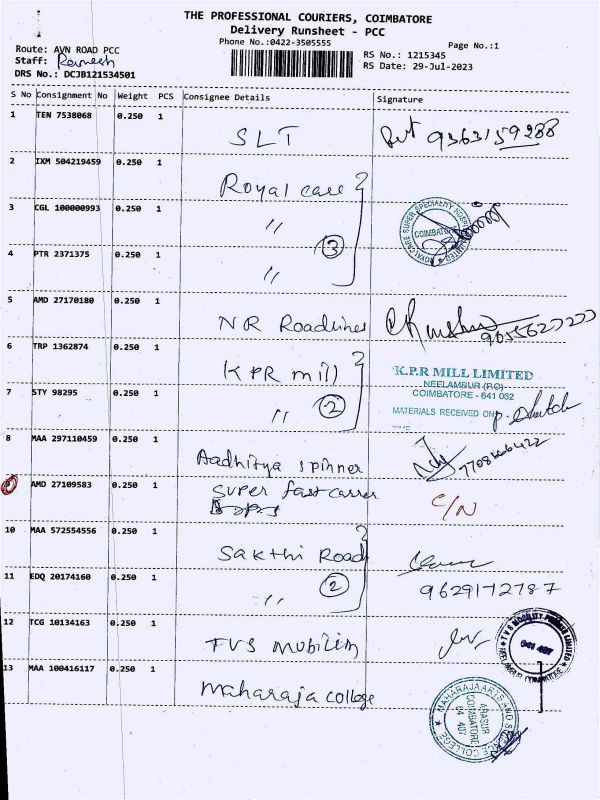 THE PROFESSIONAL COURIERS, COIMBATORE
Delivery Runsheet - PCC
Phone No.:0422-3505555
Page No.:1
Route: AVN ROAD PCC
Staff:
DRS No.: DCJB121534501
RS No.: 1215345
RS Date: 29-Jul-2023
S No Consignment No Weight PCS Consignee Details Signature
1 TEN 7538068 0.250 1 SLT 9363159288
2 IXM 504219459 0.250 1 Royal care
3 CGL 100000993 0.250 1 〃 3
ROYAL CARE SUPER SPECIALITY HOSPITAL LIMITED
COIMBATORE
4 PTR 2371375 0.250 1 〃
5 AMD 27170180 0.250 1 NR Roadlines
6 TRP 1362874 0.250 1 KPR mill
K.P.R MILL LIMITED
NEELAMBUR (P.O)
COIMBATORE - 641 062
7 STY 98295 0.250 1 〃 2
MATERIALS RECEIVED ON
TIME
8 MAA 297110459 0.250 1 Aadhitya spinner
9 AMD 27109583 0.250 1 super fast carrer C/N
10 MAA 572554556 0.250 1 Sakthi Road
11 EDQ 20174160 0.250 1 〃 2 9629172787
12 TCG 10134163 0.250 1 TVS mobility
TVS MOBILITY PRIVATE LIMITED
641 407
COIMBATORE
13 MAA 100416117 0.250 1 maharaja college
MAHARAJA ARTS AND SCIENCE COLLEGE
ARASUR
COIMBATORE
64 407